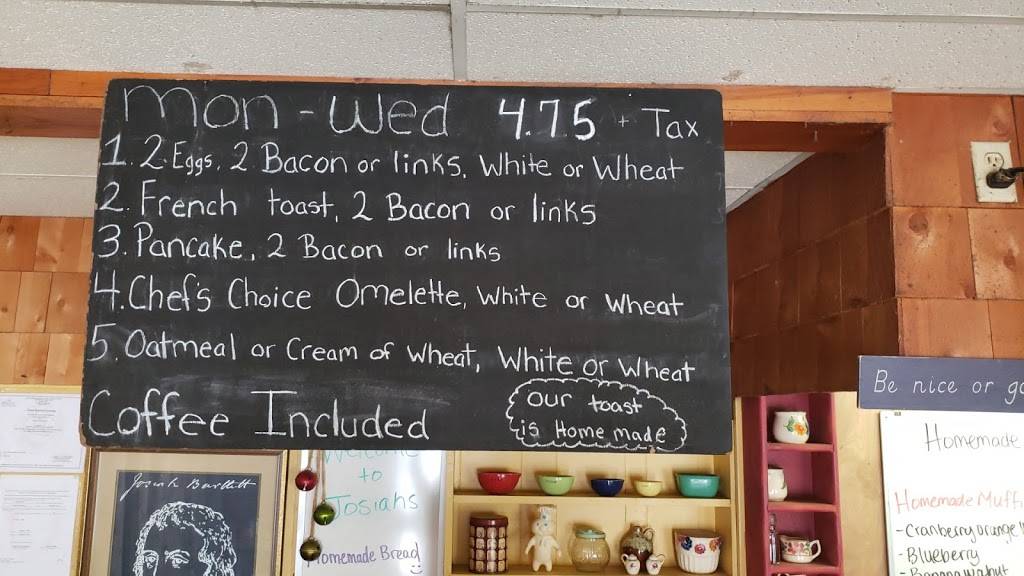 mon - wed 4.75 + Tax
1. 2 Eggs, 2 Bacon or links, White or Wheat
2. French toast, 2 Bacon or links
3. Pancake, 2 Bacon or links
4. Chef's Choice Omelette, White or Wheat
5. Oatmeal or Cream of Wheat, White or Wheat
Coffee Included
our toast
is Home made
Be nice or go
Homemade
Homemade Muff
- Cranberry orange
- Blueberry
- Banana walnut
Welcome
to
Josiahs
Homemade Bread
Josiah Bartlett